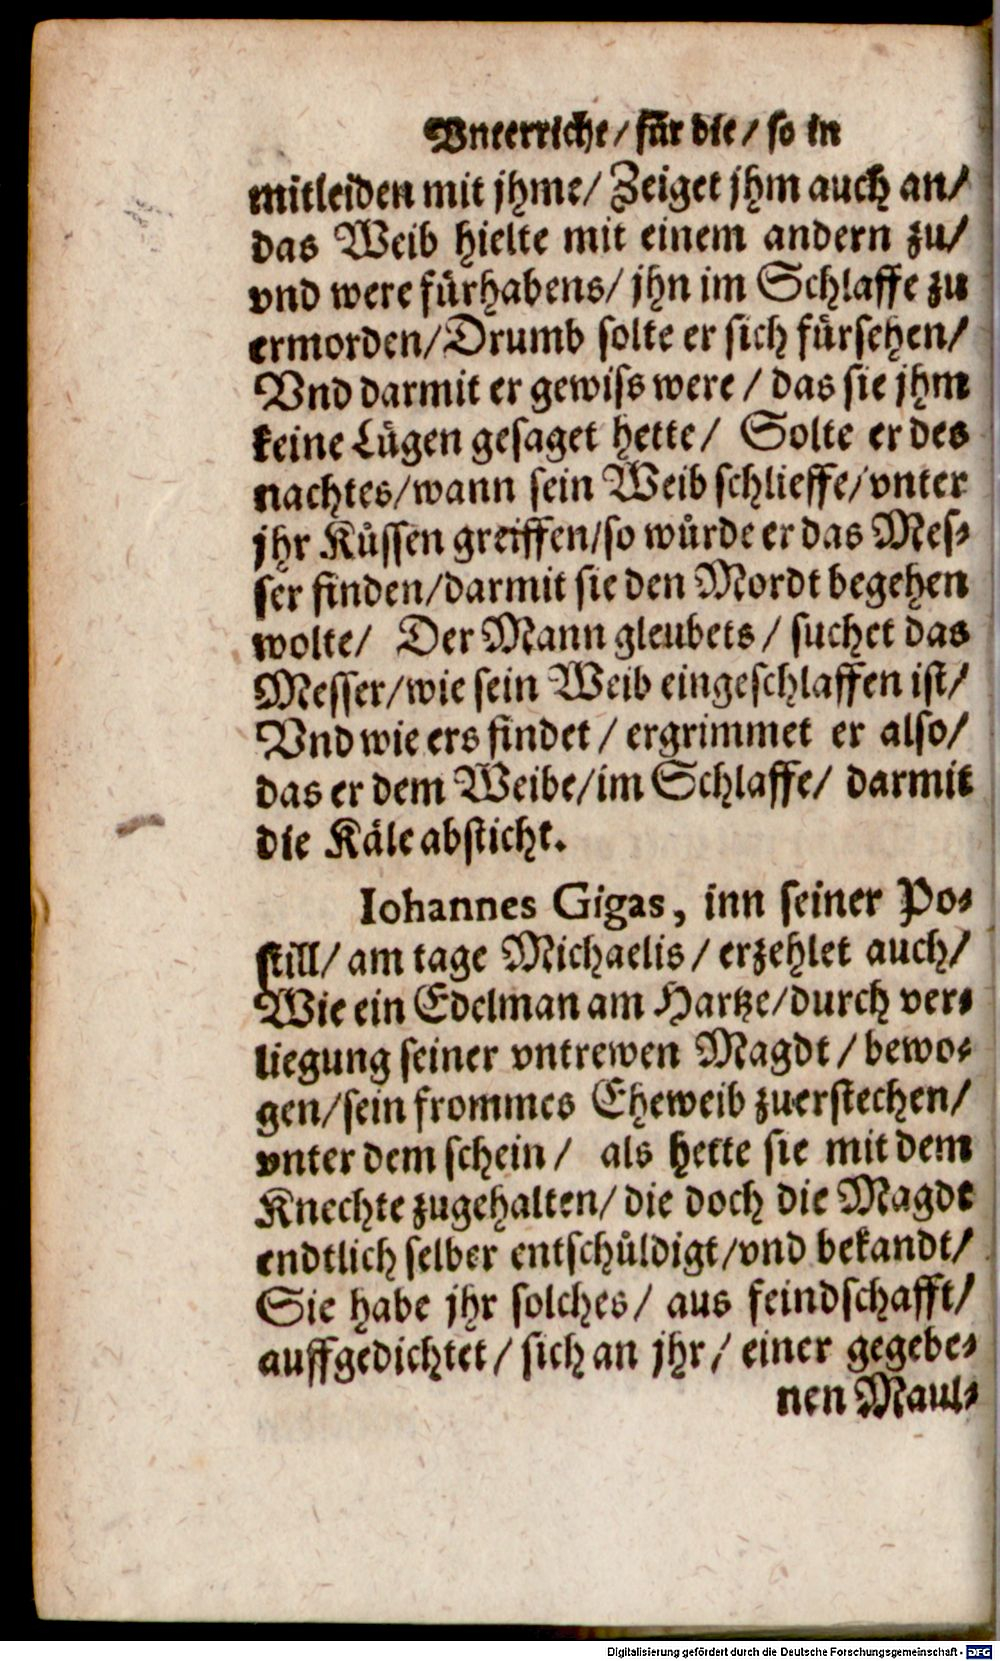 Vnterricht/ für die/ so in
mitleiden mit jhme/ Zeiget jhm auch an/
das Weib hielte mit einem andern zu/
vnd were fürhabens/ jhn im Schlaffe zu
ermorden/Drumb solte er sich fürsehen/
Vnd darmit er gewiss were / das sie jhm
keine Lügen gesaget hette/ Solte er des
nachtes/wann sein Weib schlieffe/vnter
jhr Küssen greiffen/so würde er das Mes-
ser finden/darmit sie den Mordt begehen
wolte/ Der Mann gleubets / suchet das
Messer/wie sein Weib eingeschlaffen ist/
Vnd wie ers findet / ergrimmet er also/
das er dem Weibe/im Schlaffe/ darmit
die Käle absticht.
Iohannes Gigas, inn seiner Po-
still/ am tage Michaelis / erzehlet auch/
Wie ein Edelman am Hartze/durch ver-
liegung seiner vntrewen Magdt / bewo-
gen/sein frommes Eheweib zuerstechen/
vnter dem schein / als hette sie mit dem
Knechte zugehalten/ die doch die Magdt
endtlich selber entschüldigt/vnd bekandt/
Sie habe jhr solches/ aus feindschafft/
auffgedichtet / sich an jhr/ einer gegebe-
nen Maul-
Digitalisierung gefördert durch die Deutsche Forschungsgemeinschaft - DFG